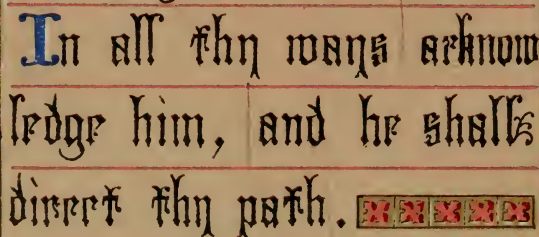 In all thy ways acknow
ledge him, and he shall
direct thy path.